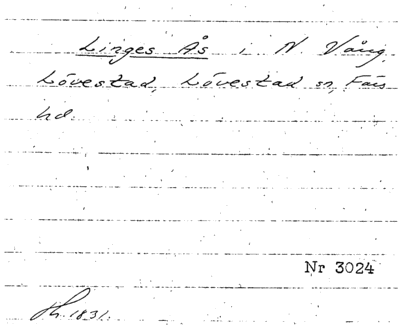 Linges Ås i N. Vång,
Lövestad, Lövestad sn, Färs
hd.
Nr 3024
1831.